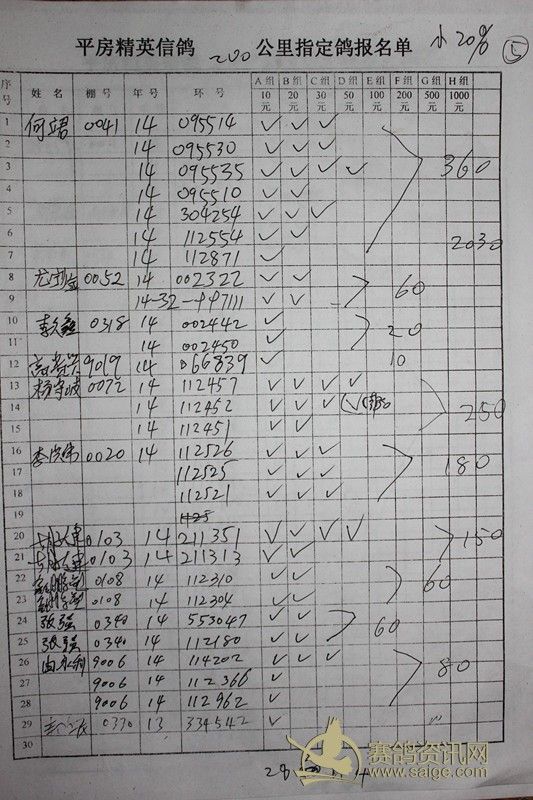 平房精英信鸽 200 公里指定鸽报名单 小20% ⑤
序号 姓名 棚号 年号 环号 A组10元 B组20元 C组30元 D组50元 E组100元 F组200元 G组500元 H组1000元
1 0041 14 095514 ✓ ✓ ✓
2 14 095530 ✓ ✓ ✓
3 14 095535 ✓ ✓ ✓ ✓ 360
4 14 095510 ✓ ✓
5 14 304254 ✓ ✓ ✓
6 14 112554 ✓ ✓ 2030
7 14 112871 ✓
8 0052 14 002322 ✓ ✓ 60
9 14-32- ✓ ✓
10 0318 14 002442 ✓ 20
11 14 002450 ✓
12 9019 14 066839 ✓ 10
13 0072 14 112457 ✓ ✓ ✓ ✓
14 14 112452 ✓ ✓ ✓ ✓ 250
15 14 112451 ✓ ✓
16 0020 14 112526 ✓ ✓ ✓ 180
17 112525 ✓ ✓ ✓
18 112521 ✓ ✓ ✓
19
20 0103 14 211351 ✓ ✓ ✓ ✓ 150
21 0103 14 211313 ✓ ✓
22 0108 14 112310 ✓ ✓ 60
23 0108 14 112304 ✓ ✓
24 张强 0340 14 553047 ✓ ✓ 60
25 张强 0340 14 112180 ✓ ✓
26 9006 14 114202 ✓ ✓ ✓ 80
27 9006 14 112366 ✓
28 9006 14 112962 ✓
29 0370 13 334542 ✓
30
赛鸽资讯网
www.saige.com